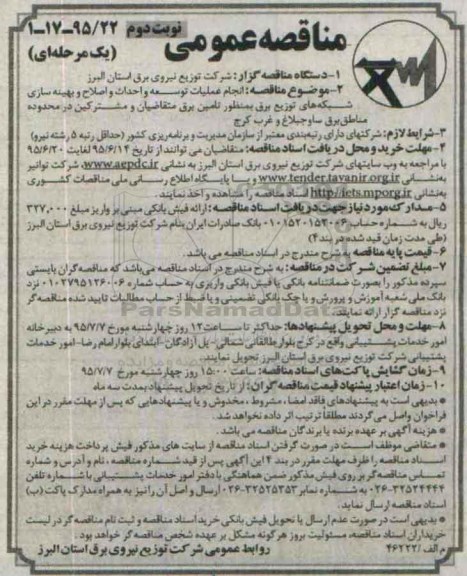 نوبت دوم ۹۵/۲۲-۱۷-۱
مناقصه عمومی (یک مرحله‌ای)
۱-دستگاه مناقصه گزار: شرکت توزیع نیروی برق استان البرز
۲-موضوع مناقصه: انجام عملیات توسعه و احداث و اصلاح و بهینه سازی
شبکه‌های توزیع برق بمنظور تامین برق متقاضیان و مشترکین در محدوده
مناطق برق ساوجبلاغ و غرب کرج
۳-شرایط لازم: شرکتهای دارای رتبه‌بندی معتبر از سازمان مدیریت و برنامه‌ریزی کشور (حداقل رتبه ۵ رشته نیرو)
۴-مهلت خرید و محل دریافت اسناد مناقصه: متقاضیان می توانند از تاریخ ۹۵/۶/۱۴ لغایت ۹۵/۶/۲۰
با مراجعه به وب سایتهای شرکت توزیع نیروی برق استان البرز به نشانی www.aepdc.ir، شرکت توانیر
به‌نشانی www.tender.tavanir.org.ir و یا پایگاه اطلاع رسانی ملی مناقصات کشوری
به‌نشانی http://iets.mporg.ir اسناد مناقصه را مشاهده و اخذ نمایند.
۵-مدارک مورد نیاز جهت دریافت اسناد مناقصه: ارائه فیش بانکی مبنی بر واریز مبلغ ۳۲۷,۰۰۰
ریال به شماره حساب ۰۱۰۱۵۲۰۱۵۳۰۰۶ بانک صادرات ایران بنام شرکت توزیع نیروی برق استان البرز
(طی مدت زمان قید شده در بند ۴)
۶-قیمت پایه مناقصه به شرح مندرج در اسناد مناقصه می باشد.
۷-مبلغ تضمین شرکت در مناقصه: به شرح مندرج در اسناد مناقصه می‌باشد که مناقصه گران بایستی
سپرده مذکور را بصورت ضمانتنامه بانکی یا فیش بانکی واریزی به حساب شماره ۰۱۰۲۷۹۵۱۲۶۰۰۶ نزد
بانک ملی شعبه آموزش و پرورش و یا چک بانکی تضمینی و یا ضبط از حساب مطالبات تایید شده مناقصه‌گر
نزد مناقصه گزار ارائه نمایند.
۸-مهلت و محل تحویل پیشنهادها: حداکثر تا ساعت ۱۲ روز چهارشنبه مورخ ۹۵/۷/۷ به دبیرخانه
امور خدمات پشتیبانی واقع در کرج بلوار طالقانی شمالی- پل آزادگان- ابتدای بلوار امام رضا- امور خدمات
پشتیبانی شرکت توزیع نیروی برق استان البرز تحویل نمایند.
۹-زمان گشایش پاکت‌های اسناد مناقصه: ساعت ۱۵:۰۰ روز چهارشنبه مورخ ۹۵/۷/۷
۱۰-زمان اعتبار پیشنهاد قیمت مناقصه گران: از تاریخ تحویل پیشنهاد بمدت سه ماه
● بدیهی است به پیشنهادهای فاقد امضا، مشروط، مخدوش و یا پیشنهادهایی که پس از مهلت مقرر در این
فراخوان واصل می گردند مطلقاً ترتیب اثر داده نخواهد شد.
● هزینه آگهی بر عهده برنده یا برندگان مناقصه می باشد.
● متقاضی موظف است در صورت گرفتن اسناد مناقصه از سایت های مذکور فیش پرداخت هزینه خرید
اسناد مناقصه را ظرف مهلت مقرر در بند ۴ این آگهی پس از قید شماره مناقصه، نام و آدرس و شماره
تماس مناقصه گر بر روی فیش مذکور ضمن هماهنگی با دفتر امور خدمات پشتیبانی با شماره تلفن
۰۲۶-۳۲۵۲۴۴۴۴ به شماره نمابر ۰۲۶-۳۲۵۲۵۳۵۳ ارسال و اصل آن را نیز به همراه مدارک پاکت (ب)
اسناد مناقصه ارسال نماید.
● بدیهی است در صورت عدم ارسال یا تحویل فیش بانکی خرید اسناد مناقصه و ثبت نام مناقصه گر در لیست
خریداران اسناد مناقصه، مسئولیت بروز هر گونه مشکل بر عهده شخص مناقصه گر خواهد بود.
م الف/۴۶۲۲۲ روابط عمومی شرکت توزیع نیروی برق استان البرز
ParsNamadData